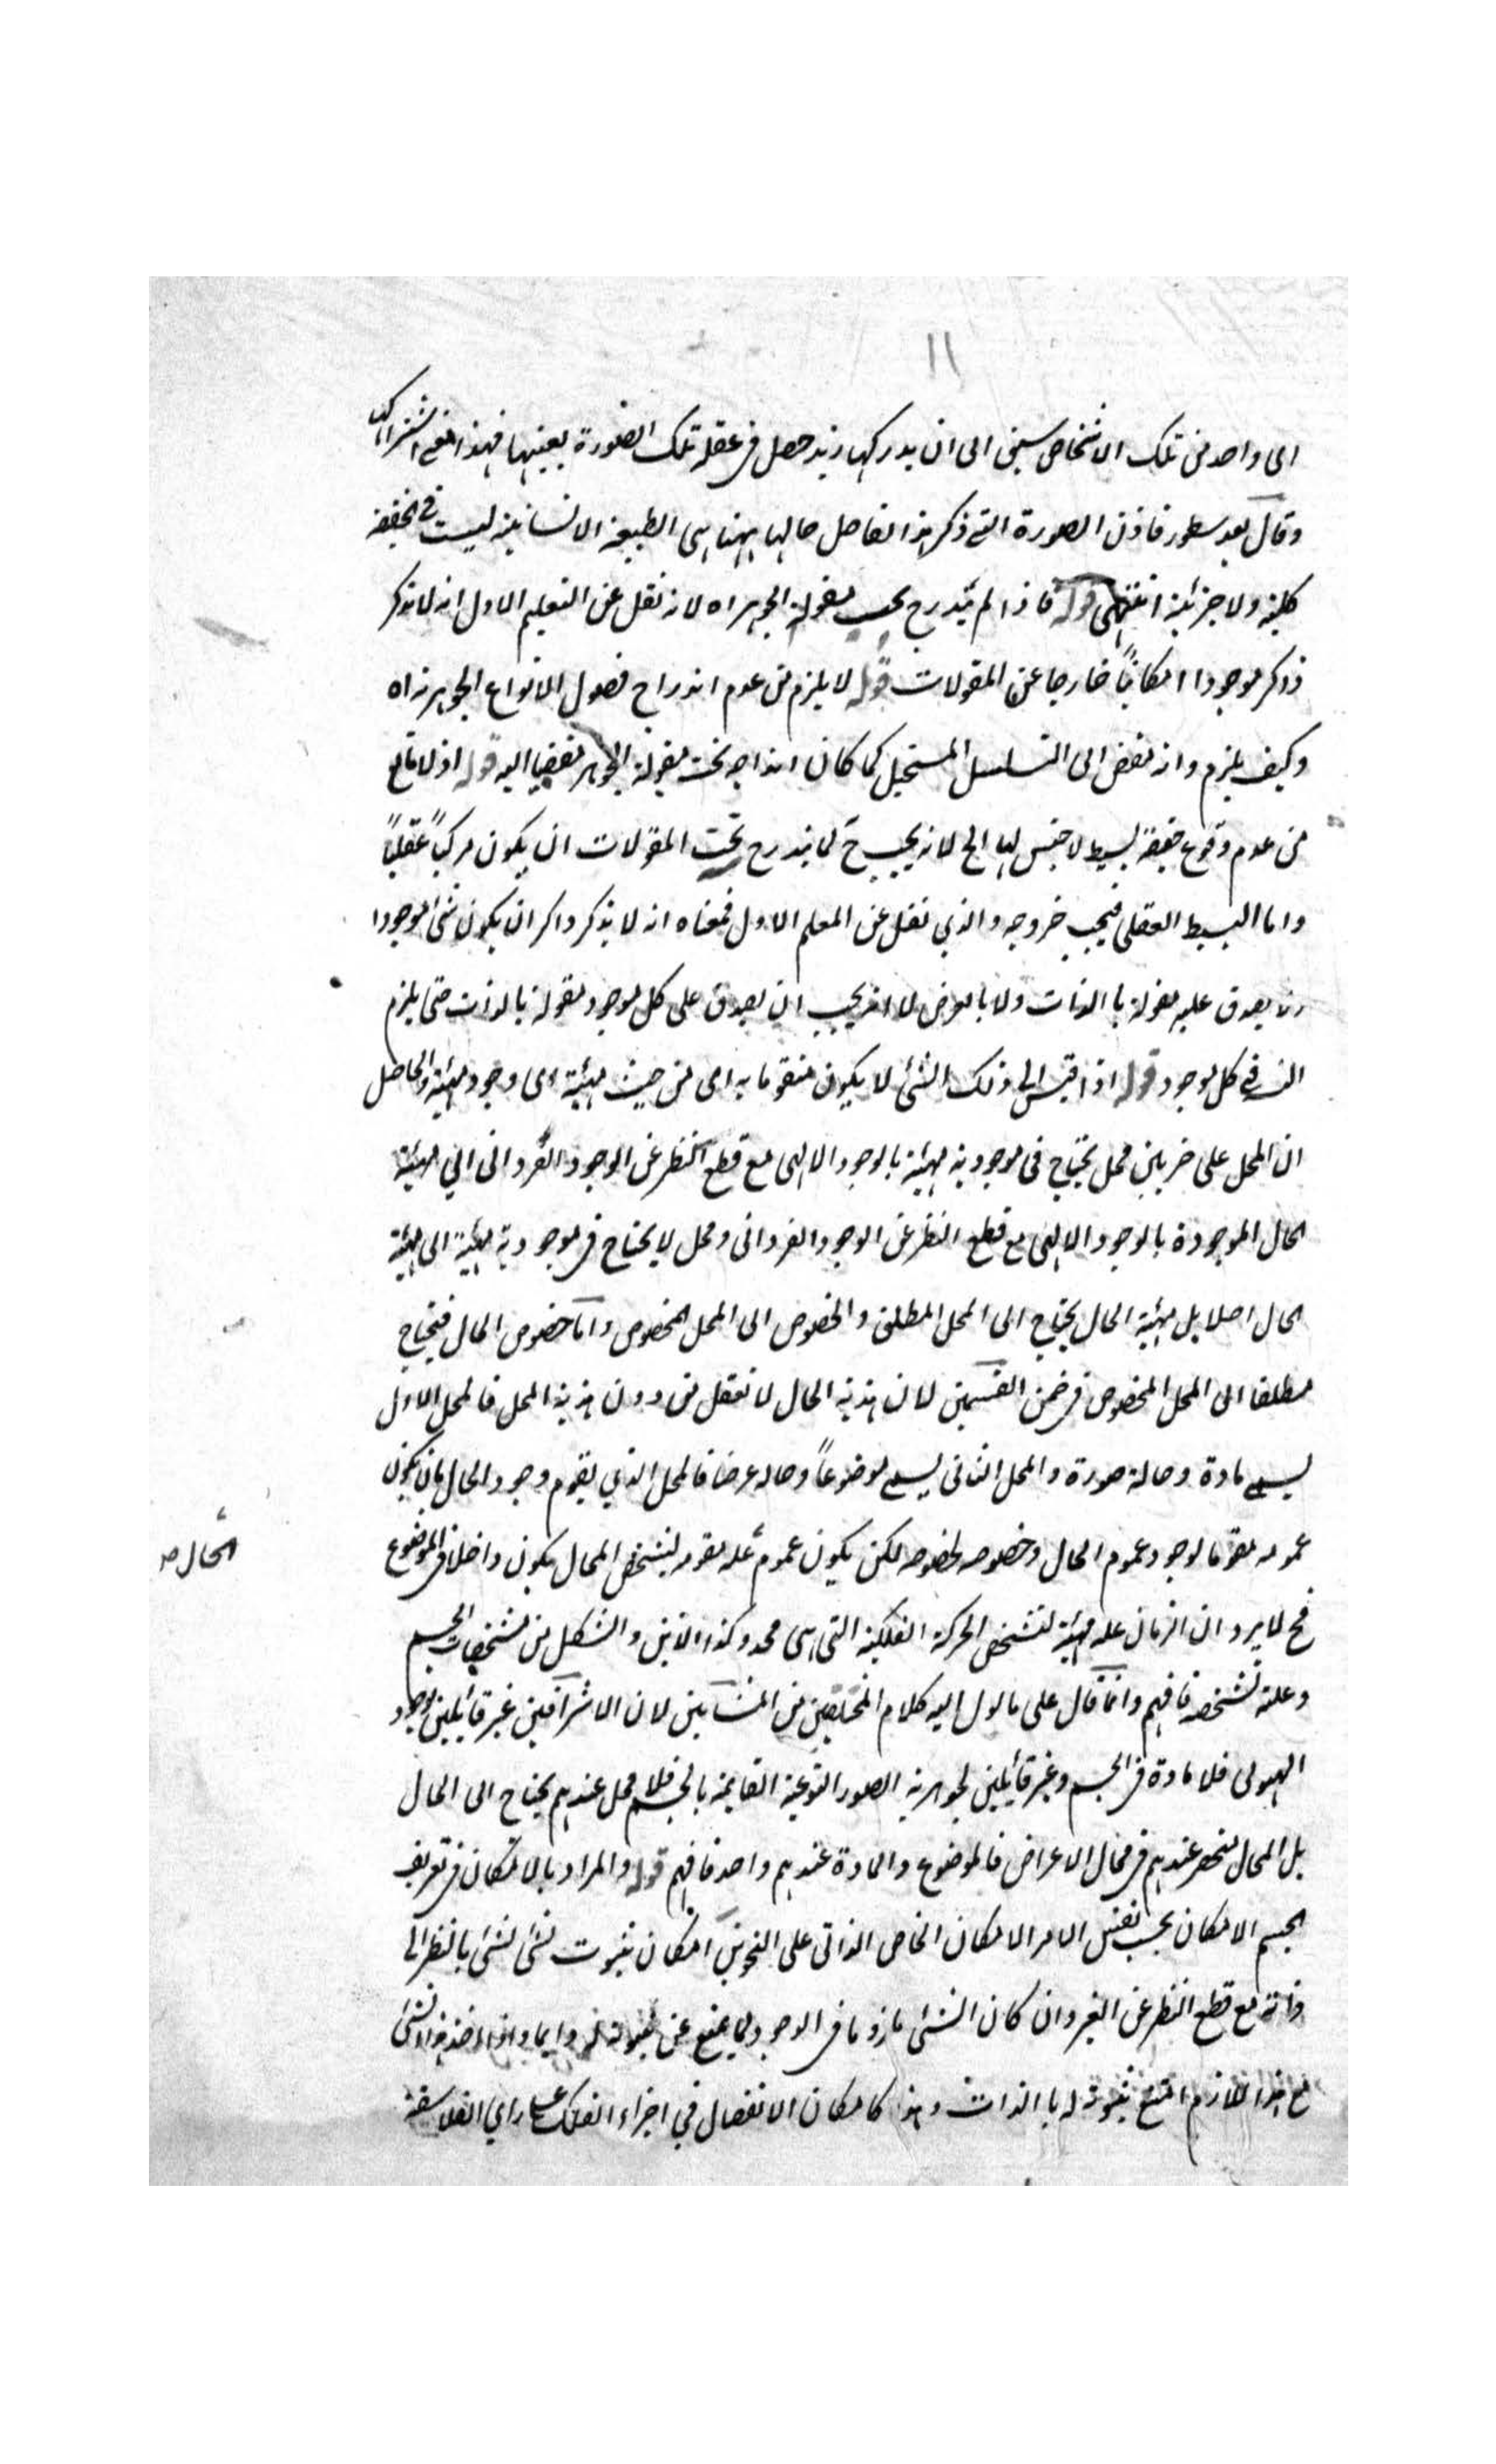 ١١
اى واحد من تلك الاشخاص سبق الى ان يدركها زيد حصل فى عقله تلك الصورة بعينها فهذا معنى اشتراكها
وقال بعد سطور فاذن الصورة التى ذكر هذا الفاضل حالها ههنا هى الطبيعة الانسانية ليست فى الحقيقة
كلية ولا جزئية انتهى قوله فاذا لم يندرج تحت مقولة الجوهر اه لانه نقل عن التعليم الاول انه لا يذكر
ذكر موجودا امكانيا خارجا عن المقولات قوله لا يلزم من عدم اندراج فصول الانواع الجوهرية اه
وكيف يلزم وانه مفض الى التسلسل المستحيل كما كان اندراجه تحت مقولة الجوهر مفضيا اليه قوله اذ لا مانع
من عدم وقوع حقيقة بسيطة لا جنس لها الخ لانه يجب ح لما يندرج تحت المقولات ان يكون مركباً عقلياً
واما البسيط العقلى فيجب خروجه والذي نقل عن المعلم الاول فمعناه انه لا يذكر ذاكر ان يكون شئ موجودا
لا يصدق عليه مقولة با الذات ولا بالعرض لا انه يجب ان يصدق على كل موجود مقولة بالذات حتى يلزم
فى كل موجود قوله اذا قيس الى ذلك الشئ لا يكون متقوما به اى من حيث مهية اى وجود مهية والحاصل
ان المحل على ضربين محل يحتاج فى موجودية مهية بالوجود الالهى مع قطع النظر عن الوجود الفردانى الى مهية
الحال الموجودة بالوجود الالهى مع قطع النظر عن الوجود الفردانى ومحل لا يحتاج فى موجودية مهية الى مهية
الحال اصلا بل مهية الحال يحتاج الى المحل المطلق والخصوص الى المحل المخصوص واما خصوص الحال فيحتاج
مطلقا الى المحل المخصوص فى ضمن القسمين لان هذية الحال لا تعقل من دون هذية المحل فالمحل الاول
يسمى مادة وحاله صورة والمحل الثانى يسمى موضوعاً وحاله عرضا فالمحل الذي يقوم وجود الحال بان يكون
عمومه مقوما لوجود عموم الحال وخصوصه لخصوصه لكن يكون عموم علة مقومه لتشخص المحال يكون داخلا فى الموضوع
الحال صـ
فح لا يرد ان الزمان علة مهية لتشخص الحركة الفلكية التى هى محله وكذا الاين والشكل من مشخصات الجسم
وعلته تشخصه فافهم وانما قال على ما يؤل اليه كلام المحققين من المشائين لان الاشراقيين غير قائلين بوجود
الهيولى فلا مادة فى الجسم وغير قائلين لجوهرية الصور النوعية القايمة بالجسم فلا محل عندهم يحتاج الى الحال
بل المحال منحصر عندهم فى محال الاعراض فالموضوع والمادة عندهم واحد فافهم قوله والمراد بالامكان فى تعريف
الجسم الامكان بحسب نفس الامر الامكان الخاص الذاتى على النحوين امكان ثبوت شئ لشئ بالنظر الى
ذاته مع قطع النظر عن الغير وان كان الشئ ملزوما فى الوجود لما يمنع عن ثبوته له دايما واذا اخذ هذا الشئ
مع هذا اللازم امتنع ثبوته له با الذات وهذا كامكان الانفصال في اجزاء الفلك على راي الفلاسفة